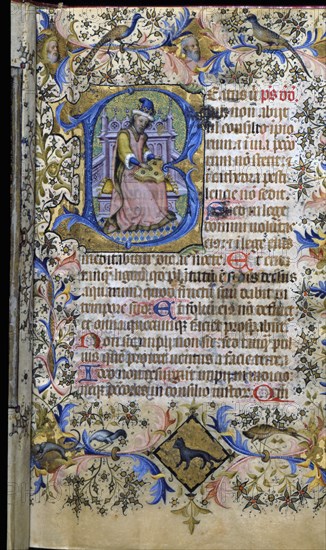 Beatus
non abiit
consilio impio
rum et in via pecca
torum non stetit et
in cathedra pesti
lencie non sedit
Sed in lege
domini voluntas
eius et in lege eius
meditabitur die ac nocte Et erit
tamquam lignum quod plantatum est secus decursus
aquarum quod fructum suum dabit in
tempore suo Et folium eius non defluet
et omnia quecumque faciet prosperabuntur
Non sic impii non sic sed tamquam pul
vis quem proicit ventus a facie terre
Ideo non resurgunt impii in iudicio
neque peccatores in consilio iustorum